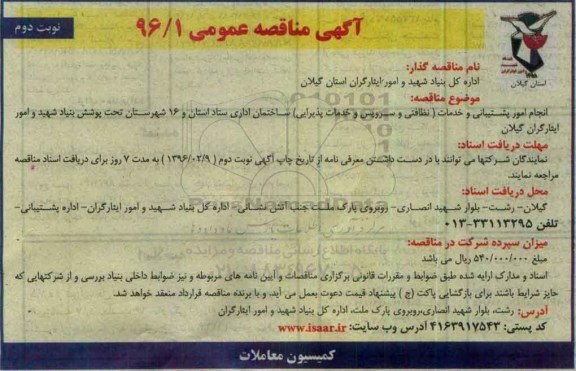 آگهی مناقصه عمومی ۹۶/۱
نوبت دوم
استان گیلان
نام مناقصه گذار:
اداره کل بنیاد شهید و امور ایثارگران استان گیلان
موضوع مناقصه:
انجام امور پشتیبانی و خدمات ( نظافتی و سرویس و خدمات پذیرایی) ساختمان اداری ستاد استان و ۱۶ شهرستان تحت پوشش بنیاد شهید و امور
ایثارگران گیلان
مهلت دریافت اسناد:
نمایندگان شرکتها می توانند با در دست داشتن معرفی نامه از تاریخ چاپ آگهی نوبت دوم ( ۱۳۹۶/۰۲/۹ ) به مدت ۷ روز برای دریافت اسناد مناقصه
مراجعه نمایند.
محل دریافت اسناد:
گیلان- رشت- بلوار شهید انصاری- روبروی پارک ملت جنب آتش نشانی- اداره کل بنیاد شهید و امور ایثارگران- اداره پشتیبانی-
تلفن ۳۳۱۱۳۲۹۵-۰۱۳
میزان سپرده شرکت در مناقصه:
مبلغ ۵۴۰/۰۰۰/۰۰۰ ریال می باشد
اسناد و مدارک ارایه شده طبق ضوابط و مقررات قانونی برگزاری مناقصات و آیین نامه های مربوطه و نیز ضوابط داخلی بنیاد بررسی و از شرکتهایی که
حایز شرایط باشند برای بازگشایی پاکت (ج ) پیشنهاد قیمت دعوت بعمل می آید و با برنده مناقصه قرارداد منعقد خواهد شد.
آدرس: رشت، بلوار شهید انصاری،روبروی پارک ملت، اداره کل بنیاد شهید و امور ایثارگران
کد پستی: ۴۱۶۳۹۱۷۵۴۳ آدرس وب سایت: www.isaar.ir
کمیسیون معاملات